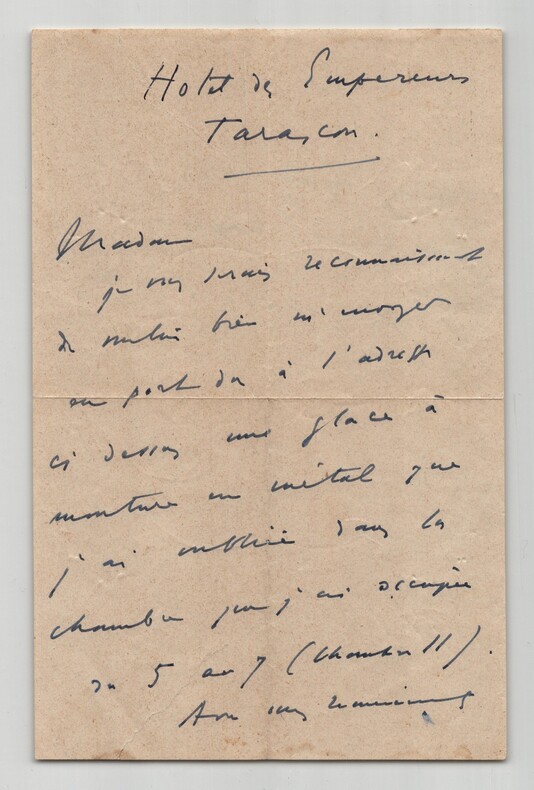 Hotel des Empereurs
Tarascon.
Madame
je vous serais reconnaissant
de vouloir bien m'envoyer
en port du à l'adresse
ci dessus une glace à
monture en métal que
j'ai oubliée dans la
chambre que j'ai occupée
du 5 au 7 (chambre 11).
Avec mes remerciements